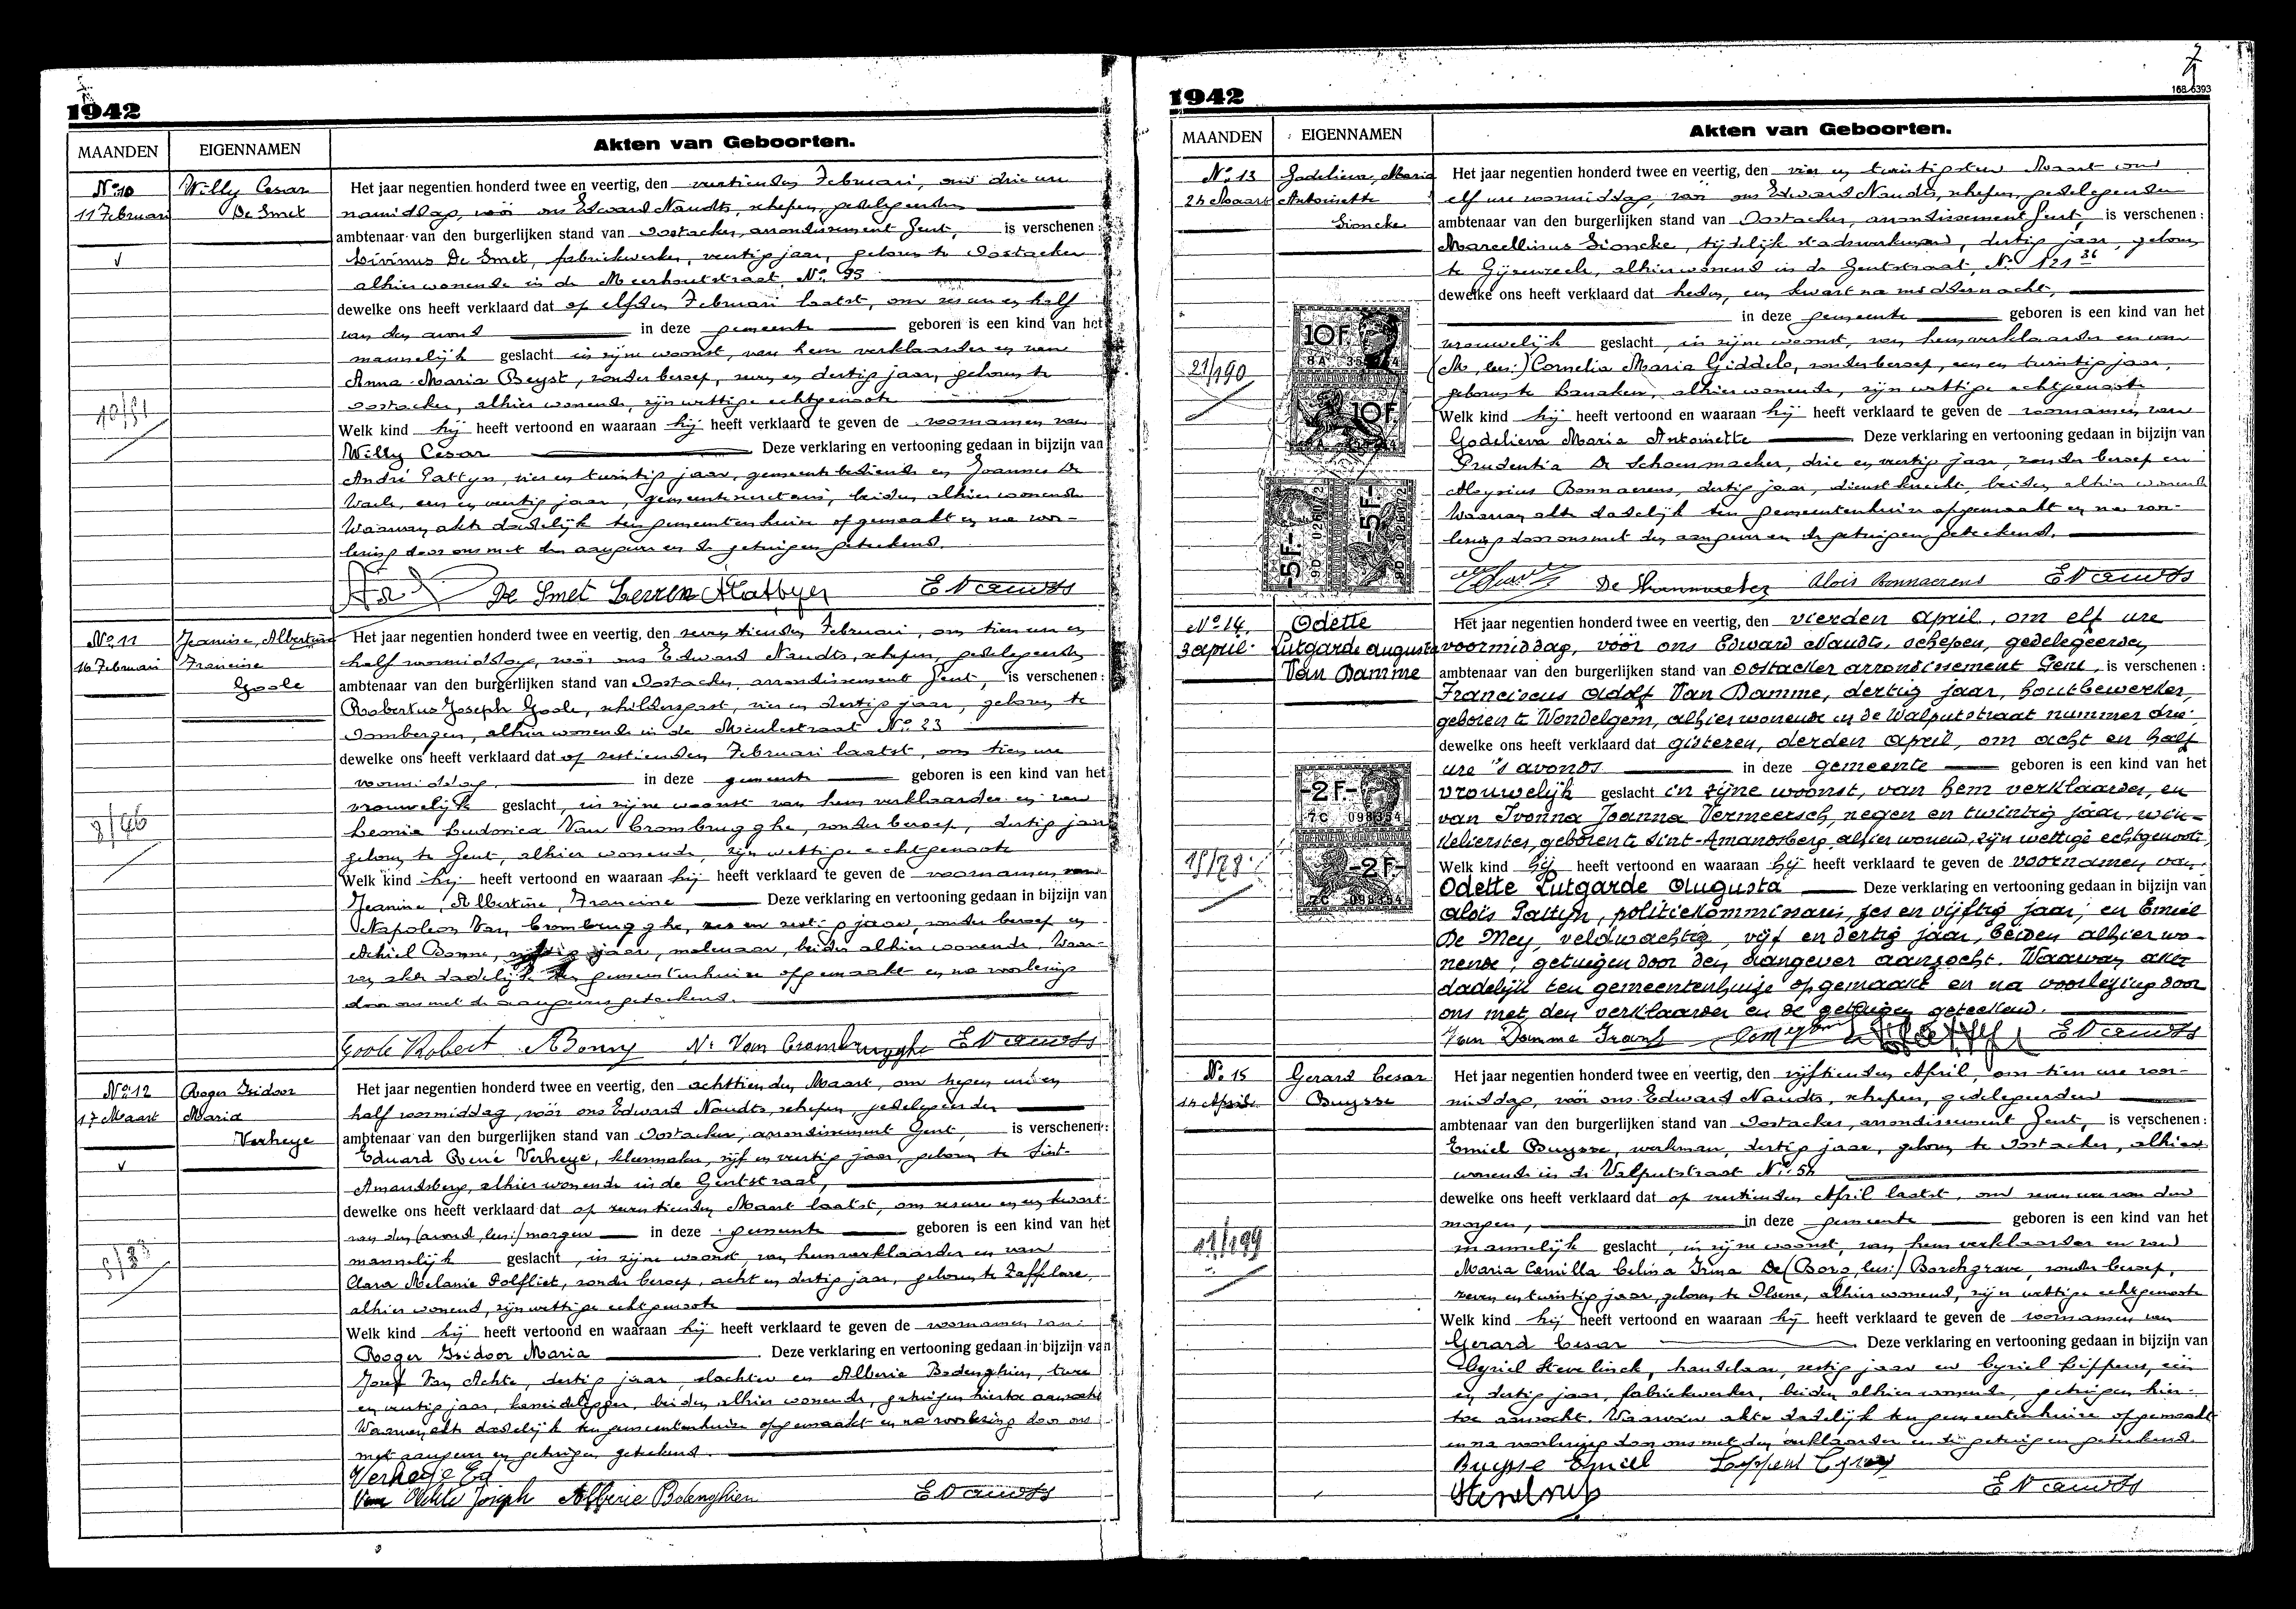 1942
MAANDEN EIGENNAMEN Akten van Geboorten.
No 10
11 Februari
Willy Cesar
De Smet
Het jaar negentien honderd twee en veertig, den veertienden Februari, om drie ure
namiddag, vóór ons Edward Naudts, schepen, gedelegeerden
ambtenaar van den burgerlijken stand van Oostacker, arrondissement Gent, is verschenen:
Livinus De Smet, fabriekwerker, veertig jaar, geboren te Oostacker
alhier wonende in de Meerhoutstraat No 95
dewelke ons heeft verklaard dat op elfden Februari laatst, om zes en half
van den avond in deze gemeente geboren is een kind van het
mannelijk geslacht in zijne woonst, van hem verklaarder en van
Anna-Maria Beyst, zonder beroep, zeven en dertig jaar, geboren te
Oostacker, alhier wonende, zijn wettige echtgenoote
10/51
Welk kind hij heeft vertoond en waaraan hij heeft verklaard te geven de voornamen van
Willy Cesar Deze verklaring en vertooning gedaan in bijzijn van
André Pattyn, vier en twintig jaar, gemeentebediende en Joannes De
een en veertig jaar, gemeentesecretaris, beiden alhier wonende
Waarvan akte dadelijk ten gemeentenhuize opgemaakt en na voor-
lezing door ons met den aangever en de getuigen geteekend.
De Smet APattyn ENaudts
No 11
16 Februari
Jeanine, Albertine
Francine
Goole
Het jaar negentien honderd twee en veertig, den zeventienden Februari, om tien ure en
half voormiddag, vóór ons Edward Naudts, schepen, gedelegeerden
ambtenaar van den burgerlijken stand van Oostacker, arrondissement Gent, is verschenen:
Robertus Joseph Goole, schildersgast, vier en dertig jaar, geboren te
Oombergen, alhier wonende in de Meulestraat No 23
dewelke ons heeft verklaard dat op zestienden Februari laatst, om tien ure
voormiddag in deze gemeente geboren is een kind van het
vrouwelijk geslacht, in zijne woonst van hem verklaarder en van
Leonia Ludovica Van Crombrugghe, zonder beroep, dertig jaar
geboren te Gent, alhier wonende, zijn wettige echtgenoote
3/46
Welk kind hij heeft vertoond en waaraan hij heeft verklaard te geven de voornamen van
Jeanine, Albertine, Francine Deze verklaring en vertooning gedaan in bijzijn van
Napoleon Van Crombrugghe, zes en zestig jaar, zonder beroep en
Achiel Bonne, vijftig jaar, molenaar, beiden alhier wonende. Waar-
van akte dadelijk ten gemeentenhuize opgemaakt en na voorlezing
door ons met de aangevers geteekend.
Goole Robert ABonny N. Van Crombrugghe ENaudts
No 12
17 Maart
Roger Isidoor
Maria
Verheye
Het jaar negentien honderd twee en veertig, den achttienden Maart, om negen ure en
half voormiddag, vóór ons Edward Naudts, schepen, gedelegeerden
ambtenaar van den burgerlijken stand van Oostacker, arrondissement Gent, is verschenen:
Eduard René Verheye, kleermaker, vijf en veertig jaar, geboren te Sint-
Amandsberg, alhier wonende in de Gentstraat,
dewelke ons heeft verklaard dat op zeventienden Maart laatst, om zes ure en een kwart
van den (avond, lees:) morgen in deze gemeente geboren is een kind van het
mannelijk geslacht, in zijne woonst, van hem verklaarder en van
Clara Melanie Dolfliet, zonder beroep, acht en dertig jaar, geboren te Zaffelare,
alhier wonend, zijn wettige echtgenoote
Welk kind hij heeft vertoond en waaraan hij heeft verklaard te geven de voornamen van
Roger Isidoor Maria Deze verklaring en vertooning gedaan in bijzijn van
Jozef Van Achte, dertig jaar, slachter en Alberic Bodenghien, twee
en veertig jaar, beiden alhier wonende, getuigen hiertoe aanzocht
Waarvan akte dadelijk ten gemeentenhuize opgemaakt en na voorlezing door ons
met aangever en getuigen geteekend.
Verheye Ed
Van Achte Joseph Alberic Bodenghien ENaudts
7
168 6393
1942
MAANDEN EIGENNAMEN Akten van Geboorten.
No 13
24 Maart
Godelieva, Maria
Antoinette
Sioncke
Het jaar negentien honderd twee en veertig, den vier en twintigsten Maart om
elf ure voormiddag, vóór ons Edward Naudts, schepen, gedelegeerden
ambtenaar van den burgerlijken stand van Oostacker, arrondissement Gent, is verschenen:
Marcellinus Sioncke, tijdelijk stadswerkman, dertig jaar, geboren
te Gijzenzeele, alhier wonend in de Gentstraat, No 121 36
dewelke ons heeft verklaard dat heden, een kwart na middernacht,
in deze gemeente geboren is een kind van het
vrouwelijk geslacht, in zijne woonst, van hem verklaarder en van
(M, lees:) Cornelia Maria Giddelo, zonder beroep, een en twintig jaar,
geboren te alhier wonende, zijn wettige echtgenoote
10F.
10F.
-5F-
-5F-
21/190
Welk kind hij heeft vertoond en waaraan hij heeft verklaard te geven de voornamen van
Godelieva Maria Antoinette Deze verklaring en vertooning gedaan in bijzijn van
Prudentia De Schoenmaeker, drie en veertig jaar, zonder beroep en
Aloysius Bonnaerens, dertig jaar, dienstknecht, beiden alhier wonend
Waarvan akte dadelijk ten gemeentenhuize opgemaakt en na voor-
lezing door ons met den aangever en de getuigen geteekend.
De Schoenmaeker Alois Bonnaerens ENaudts
No 14.
3 april.
Odette
Lutgarde Augusta
Van Damme
Het jaar negentien honderd twee en veertig, den vierden April, om elf ure
voormiddag, vóór ons Edward Naudts, schepen, gedelegeerden
ambtenaar van den burgerlijken stand van Oostacker arrondissement Gent, is verschenen:
Franciscus Adolf Van Damme, dertig jaar, houtbewerker,
geboren te Wondelgem, alhier wonende in de Walputstraat nummer drie,
dewelke ons heeft verklaard dat gisteren, derden April, om acht en half
ure 's avonds in deze gemeente geboren is een kind van het
vrouwelijk geslacht in zijne woonst, van hem verklaarder, en
van Ivonna Joanna Vermeersch, negen en twintig jaar, win-
kelierster, geboren te Sint-Amandsberg alhier wonend, zijn wettige echtgenoote,
-2F-
7C 098354
-2F-
7C 098354
Welk kind hij heeft vertoond en waaraan hij heeft verklaard te geven de voornamen van.
Odette Lutgarde Augusta Deze verklaring en vertooning gedaan in bijzijn van
Aloïs Pattyn, politiekommissaris, zes en vijftig jaar, en Emiel
De Mey, veldwachter, vijf en dertig jaar, beiden alhier wo-
nende, getuigen door den aangever aanzocht. Waarvan akte
dadelijk ten gemeentenhuize opgemaakt en na voorlezing door
ons met den verklaarder en de getuigen geteekend.
Van Damme Frans ENaudts
No 15
14 April
Gerard Cesar
Buysse
Het jaar negentien honderd twee en veertig, den vijftienden April, om tien ure voor-
middag, vóór ons Edward Naudts, schepen, gedelegeerden
ambtenaar van den burgerlijken stand van Oostacker, arrondissement Gent, is verschenen:
Emiel Buysse, werkman, dertig jaar, geboren te Oostacker, alhier
wonende in de Walputstraat No 54
dewelke ons heeft verklaard dat op veertienden April laatst, om zeven ure van den
morgen, in deze gemeente geboren is een kind van het
mannelijk geslacht, in zijne woonst, van hem verklaarder en van
Maria Camilla Celina Irma De (Borg, lees:) Borchgrave, zonder beroep,
zeven en twintig jaar, geboren te Olsene, alhier wonend, zijn wettige echtgenoote
11/199
Welk kind hij heeft vertoond en waaraan hij heeft verklaard te geven de voornamen van
Gerard Cesar Deze verklaring en vertooning gedaan in bijzijn van
Cyriel Stevelinck, handelaar, zestig jaar en Cyriel Lippens, een
en dertig jaar, fabriekwerker, beiden alhier wonende, getuigen hier-
toe aanzocht. Waarvan akte dadelijk ten gemeentenhuize opgemaakt
en na voorlezing door ons met den verklaarder en de getuigen geteekend.
Buysse Emiel Lippens Cyriel
ENaudts